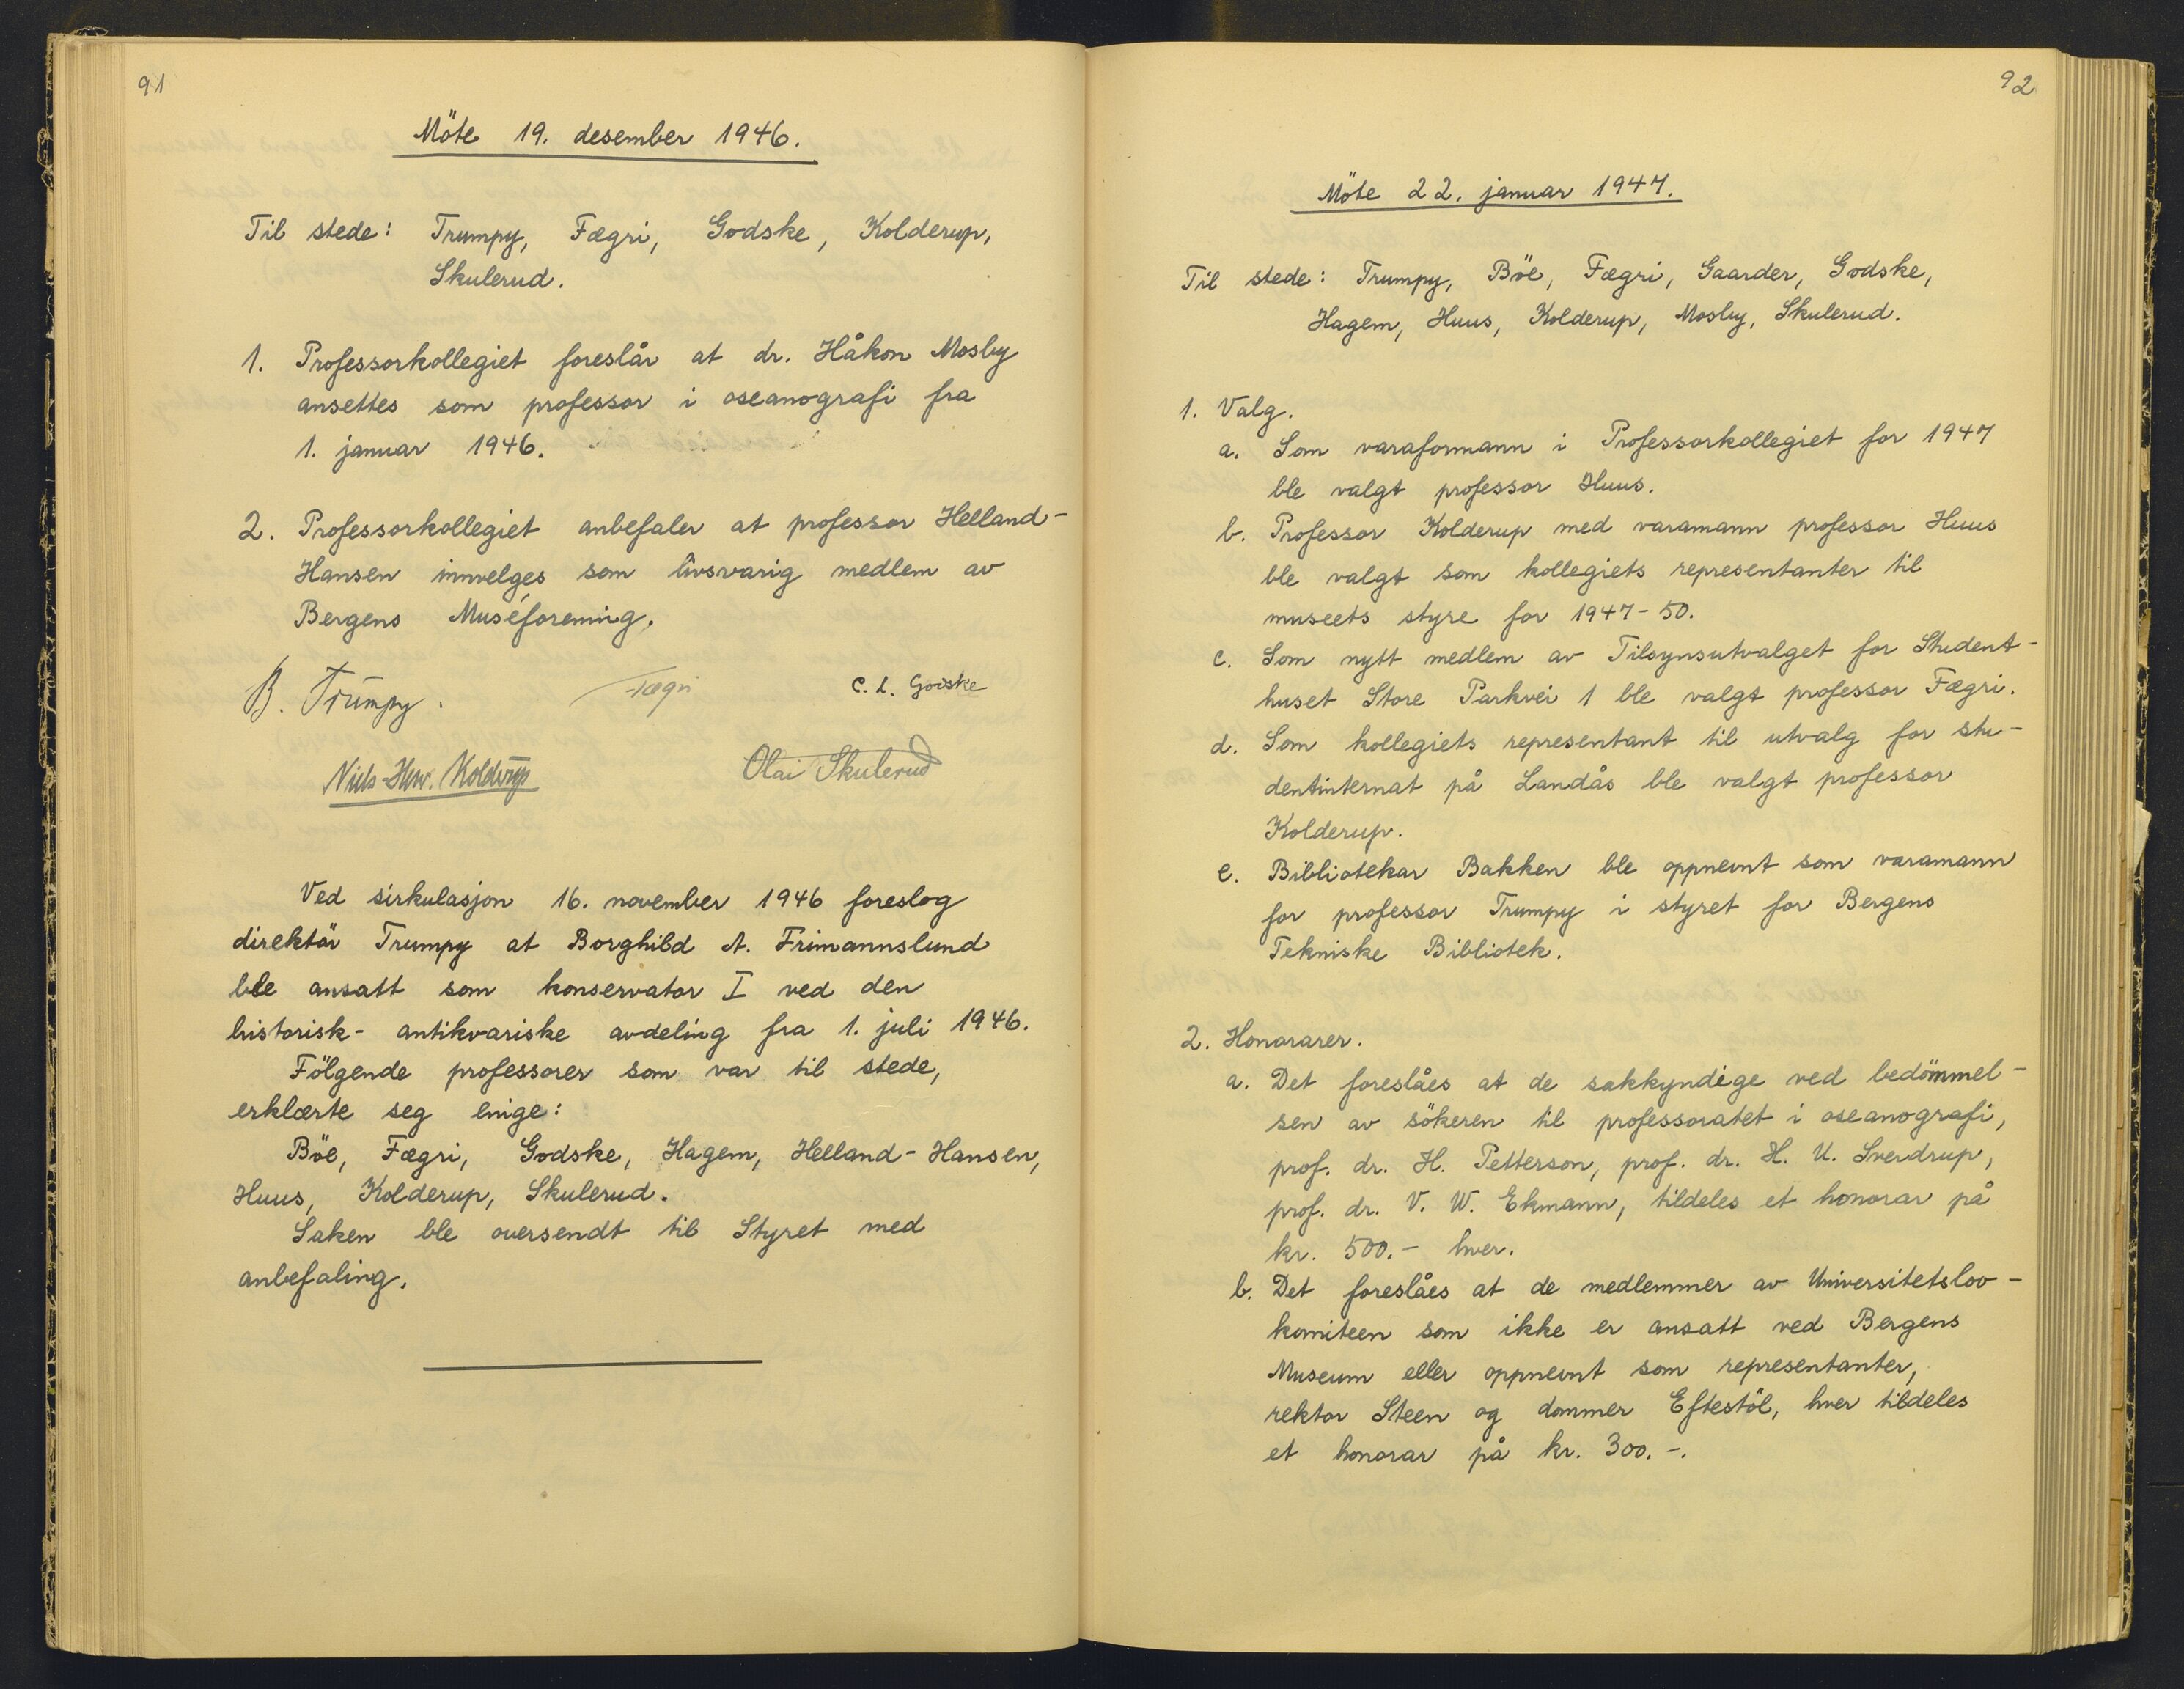 91
Möte 19. desember 1946.
Til stede: Trumpy, Fægri, Godske, Kolderup,
Skulerud.
1. Professorkollegiet foreslår at dr. Håkon Mosby
ansettes som professor i oseanografi fra
1. januar 1946.
2. Professorkollegiet anbefaler at professor Helland-
Hansen innvelges som livsvarig medlem av
Bergens Muséforening.
B. Trumpy. Fægri C. L. Godske
Niels-Henr. Kolderup Olai Skulerud
Ved sirkulasjon 16. november 1946 foreslog
direktör Trumpy at Borghild A. Frimannslund
ble ansatt som konservator I ved den
historisk-antikvariske avdeling fra 1. juli 1946.
Fölgende professorer som var til stede,
erklærte seg enige:
Böe, Fægri, Godske, Hagem, Helland-Hansen,
Huus, Kolderup, Skulerud.
Saken ble oversendt til Styret med
anbefaling.
92
Möte 22. januar 1947.
Til stede: Trumpy, Böe, Fægri, Gaarder, Godske,
Hagem, Huus, Kolderup, Mosby, Skulerud.
1. Valg.
a. Som varaformann i Professorkollegiet for 1947
ble valgt professor Huus.
b. Professor Kolderup med varamann professor Huus
ble valgt som kollegiets representanter til
museets styre for 1947-50.
c. Som nytt medlem av Tilsynsutvalget for Student-
huset Store Parkvei 1 ble valgt professor Fægri.
d. Som kollegiets representant til utvalg for stu-
dentinternat på Landås ble valgt professor
Kolderup.
e. Bibliotekar Bakken ble oppnevnt som varamann
for professor Trumpy i styret for Bergens
Tekniske Bibliotek.
2. Honorarer.
a. Det foreslåes at de sakkyndige ved bedömmel-
sen av sökeren til professoratet i oseanografi,
prof. dr. H. Petterson, prof. dr. H. U. Sverdrup,
prof. dr. V. W. Ekmann, tildeles et honorar på
kr. 500.- hver.
b. Det foreslåes at de medlemmer av Universitetslov-
komiteen som ikke er ansatt ved Bergens
Museum eller oppnevnt som representanter,
rektor Steen og dommer Eftestöl, hver tildeles
et honorar på kr. 300.-.